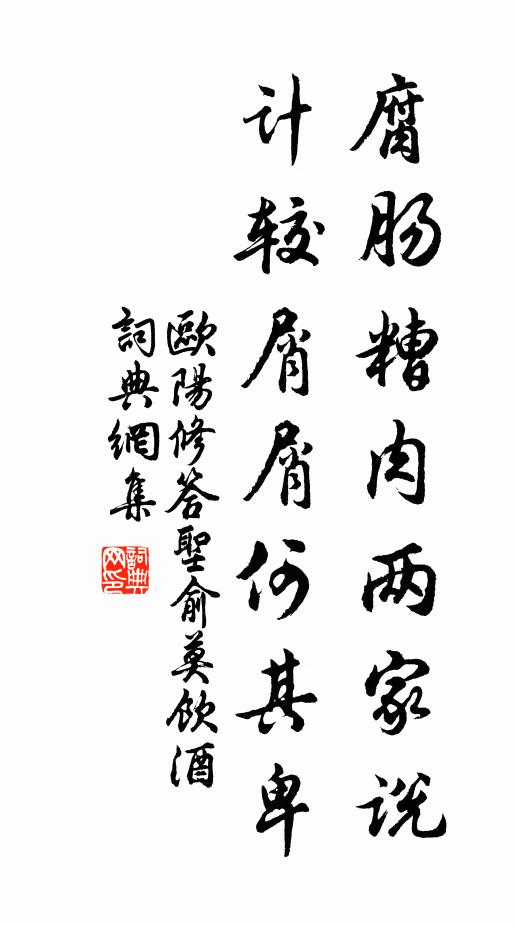 腐肠糟肉两家说
计较屑屑何其卑
歐陽修答聖俞莫飲酒
詞典網集
詞典网印